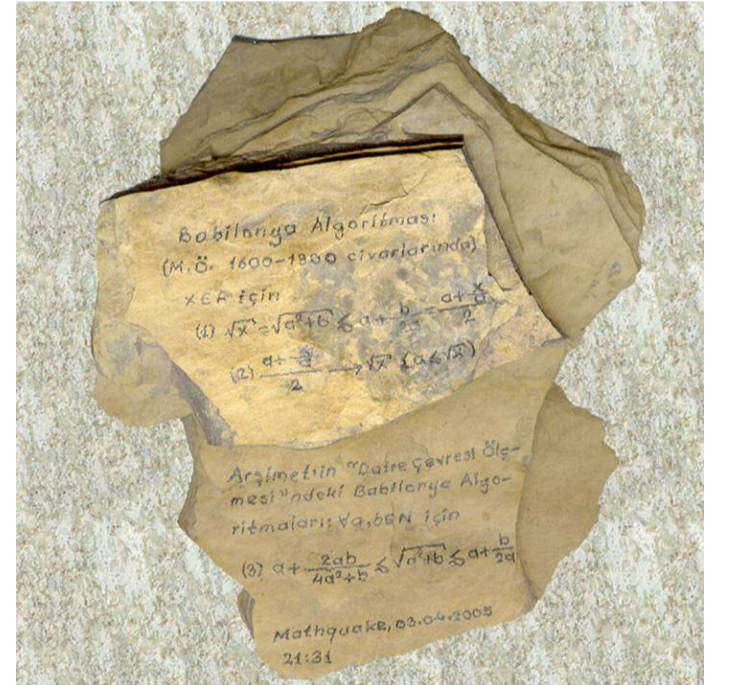 Babilonya Algoritması
(M.Ö. 1600-1800 civarlarında)
XER için
(1) √x = √a²+b ≲ a + b/2a = (a + x/a)/2
(2) (a + x/a)/2 → √x (a ≤ √x)
Arşimet'in "Daire Çevresi Ölç-
mesi"ndeki Babilonya Algo-
ritmaları: ∀a,b∈N için
(3) a + 2ab/(4a²+b) ≲ √a²+b ≲ a + b/2a
Mathquake, 03.04.2005
21:31